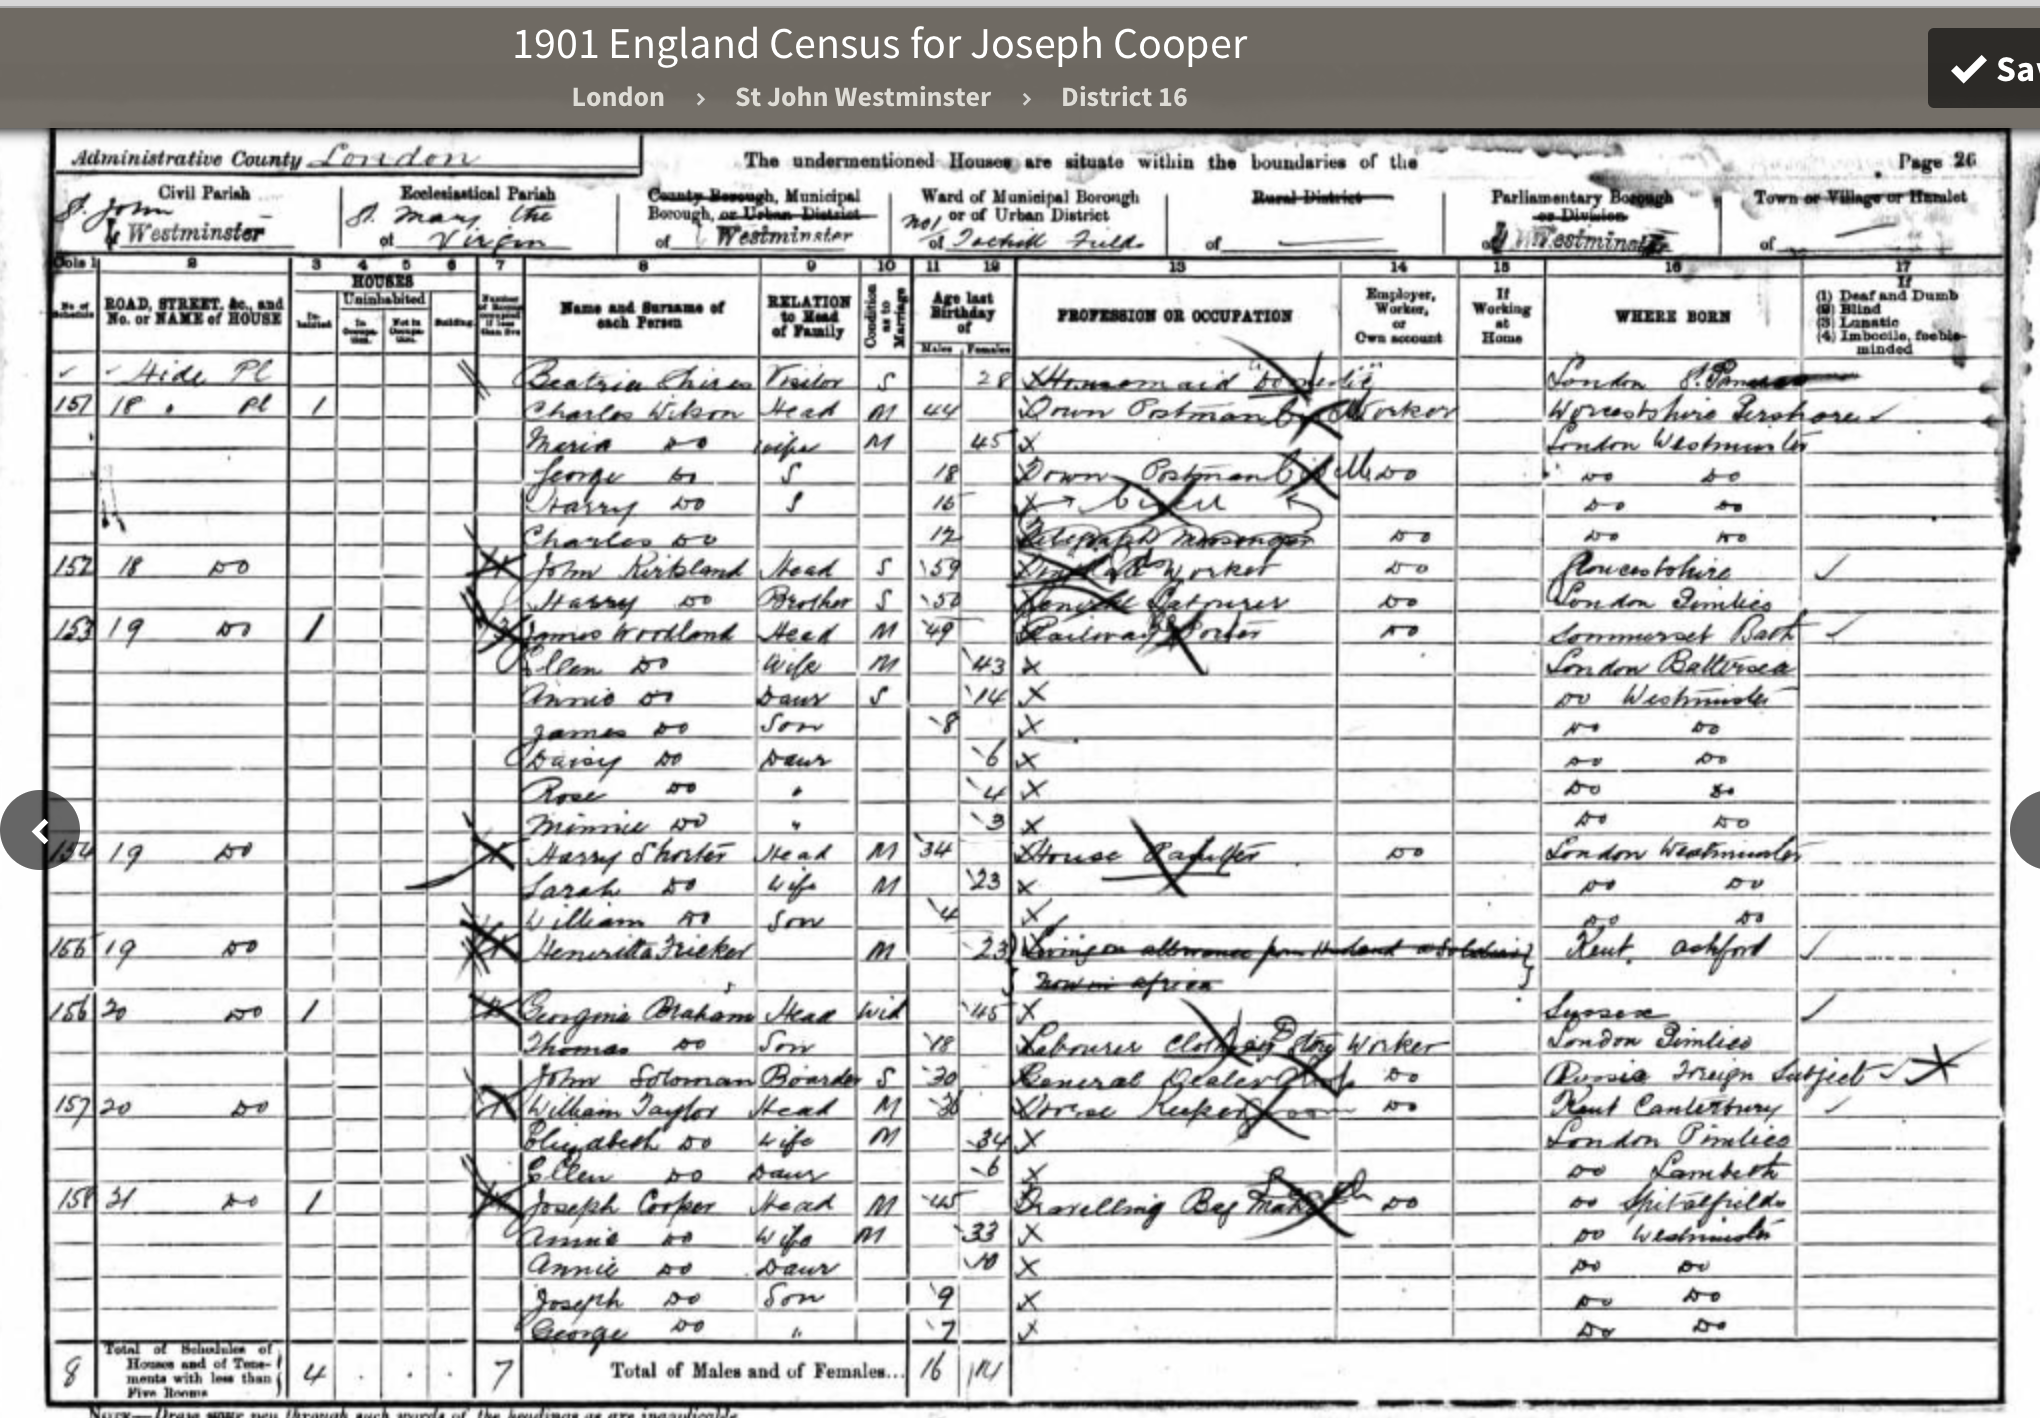 1901 England Census for Joseph Cooper
Sav
London › St John Westminster › District 16
Administrative County London
The undermentioned Houses are situate within the boundaries of the
Page 26
Civil Parish
St. John of Westminster
Ecclesiastical Parish
St. Mary the
of Virgin
County Borough, Municipal
Borough, or Urban District
of Westminster
Ward of Municipal Borough
or of Urban District
No1 of Tothill Fields
Rural District
of
Parliamentary Borough
or Division
of Westminster
Town or Village or Hamlet
of
Cols 1 2 3 4 5 6 7 8 9 10 11 12 13 14 15 16 17
No. of Schedule
ROAD, STREET, &c., and No. or NAME of HOUSE
HOUSES
Inhabited
Uninhabited
In Occupation.
Not in Occupation.
Building.
Number of Rooms occupied if less than five
Name and Surname of each Person
RELATION to Head of Family
Condition as to Marriage
Age last Birthday of
Males Females
PROFESSION OR OCCUPATION
Employer, Worker, or Own account
If Working at Home
WHERE BORN
If
(1) Deaf and Dumb
(2) Blind
(3) Lunatic
(4) Imbecile, feeble-minded
Hide Pl Beatrice Shires Visitor S 28 Housemaid London St. Pancras
151 18 " Pl 1 Charles Wilson Head M 44 Down Postman Worker Worcestshire Pershore
Maria Do Wife M 45 London Westminster
George Do S 18 Down Postman Do Do Do
Harry Do S Do Do
Charles Do 12 Telegraph Messenger Do Do Do
152 18 Do John Kirkland Head S 59 Worker Do Gloucestshire
Harry Do Brother S General Labourer Do London Pimlico
153 19 Do 1 James Woodland Head M 49 Railway Porter Do Sommerset Bath
Ellen Do Wife M 43 London Battersea
Annie Do Daur S 14 Do Westminster
James Do Son 8 Do Do
Daisy Do Daur 6 Do Do
Rose Do " 4 Do Do
Minnie Do " 3 Do Do
154 19 Do Harry Shorter Head M 34 House Painter Do London Westminster
Sarah Do Wife M 23 Do Do
William Do Son 4 Do Do
155 19 Do Heneritta Fricker M 23 Living on allowance from Husband a Soldier Kent Ashford
Now in Africa
156 20 Do 1 Georgina Braham Head Wid 45 Sussex
Thomas Do Son 18 Labourer Clothing Store Worker London Pimlico
John Soloman Boarder S 30 General Dealer Do Russia Foreign Subject
157 20 Do William Taylor Head M 36 Horse Keeper Groom Do Kent Canterbury
Elizabeth Do Wife M 34 London Pimlico
Ellen Do Daur 6 Do Lambeth
158 21 Do 1 Joseph Cooper Head M 45 Travelling Bag Maker Do Do Spitalfields
Annie Do Wife M 33 Do Westminster
Annie Do Daur 10 Do Do
Joseph Do Son 9 Do Do
George Do " 7 Do Do
8 Total of Schedules of Houses and of Tenements with less than Five Rooms 4 7 Total of Males and of Females... 16 14
NOTE—Draw your pen through such words of the headings as are inapplicable